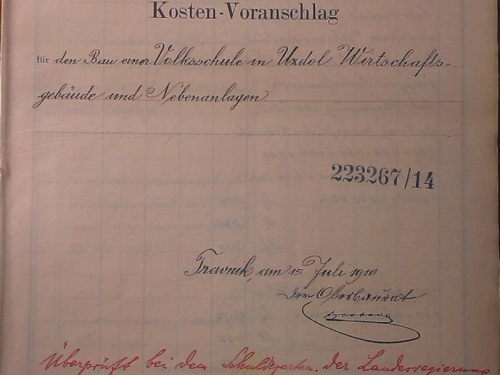 Kosten-Voranschlag
für den Bau einer Volksschule in Uzdol Wirtschafts-
gebäude und Nebenanlagen
223267/14
Travnik, am 15 Juli 1910
Der Oberbaurat
Überprüft bei dem Schuldeparten. der Landesregierung